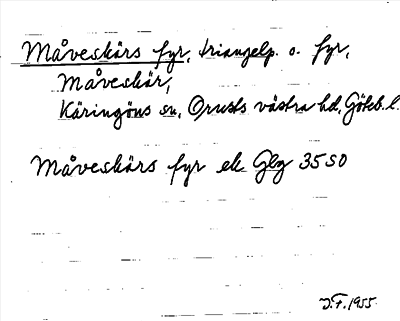 Måveskärs fyr, triangelp. o. fyr,
Måveskär,
Käringöns sn, Orusts västra hd, Göteb. l.
Måveskärs fyr ek Glg 35 SO
J.F. 1955